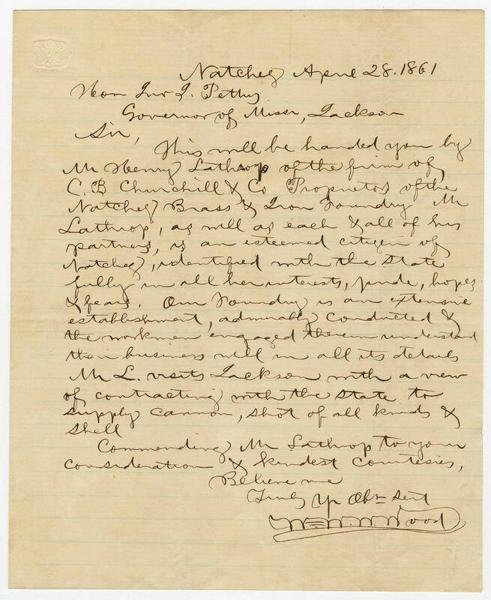 Natchez April 28. 1861
Hon Jno J. Pettus
Governor of Missi, Jackson
Sir,
This will be handed you by
Mr Henry Lathrop of the firm of
C. B Churchill & Co Proprietors of the
Natchez Brass & Iron Foundry Mr
Lathrop, as well as each & all of his
partners, is an esteemed citizen of
Natchez, identified with the State
fully in all her interests, pride, hopes
& fears. Our Foundry is an extensive
establishment, admirably conducted &
the workmen engaged therein understand
their business well in all its details
Mr L. visits Jackson with a view
of contracting with the State to
supply cannon, shot of all kinds &
shell
Commending Mr Lathrop to your
consideration & kindest courtesies,
Believe me
Truly Yr Obt Sert
Wood